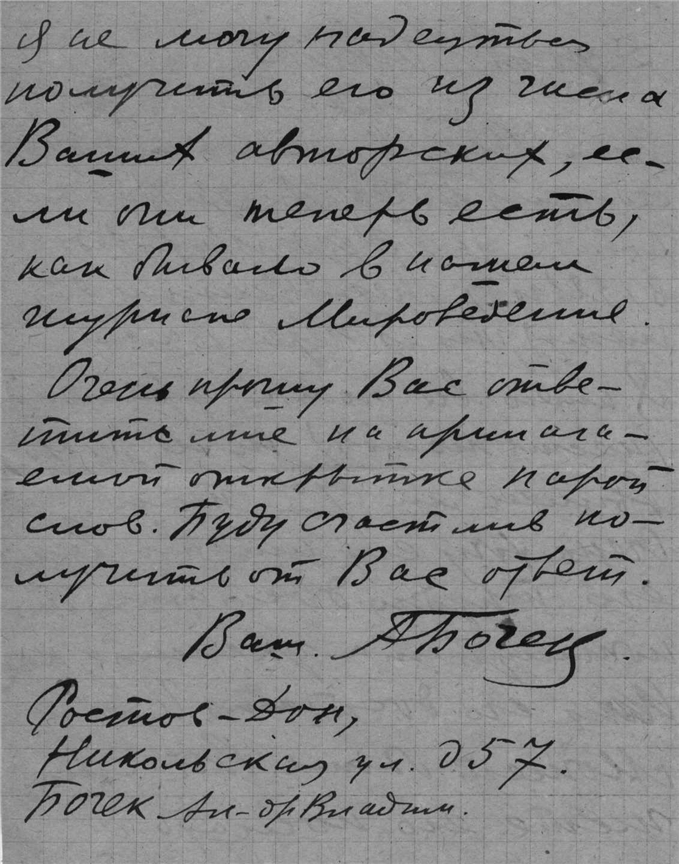 я не могу надеяться
получить его из числа
Ваших авторских, ес-
ли они теперь есть,
как бывало в нашем
журнале Мироведение.
Очень прошу Вас отве-
тить мне на прилага-
емой открытке парой
слов. Буду счастлив по-
лучить от Вас ответ.
Ваш. АБочек.
Ростов-Дон,
Никольская ул. д 57.
Бочек Ал-др Владим.